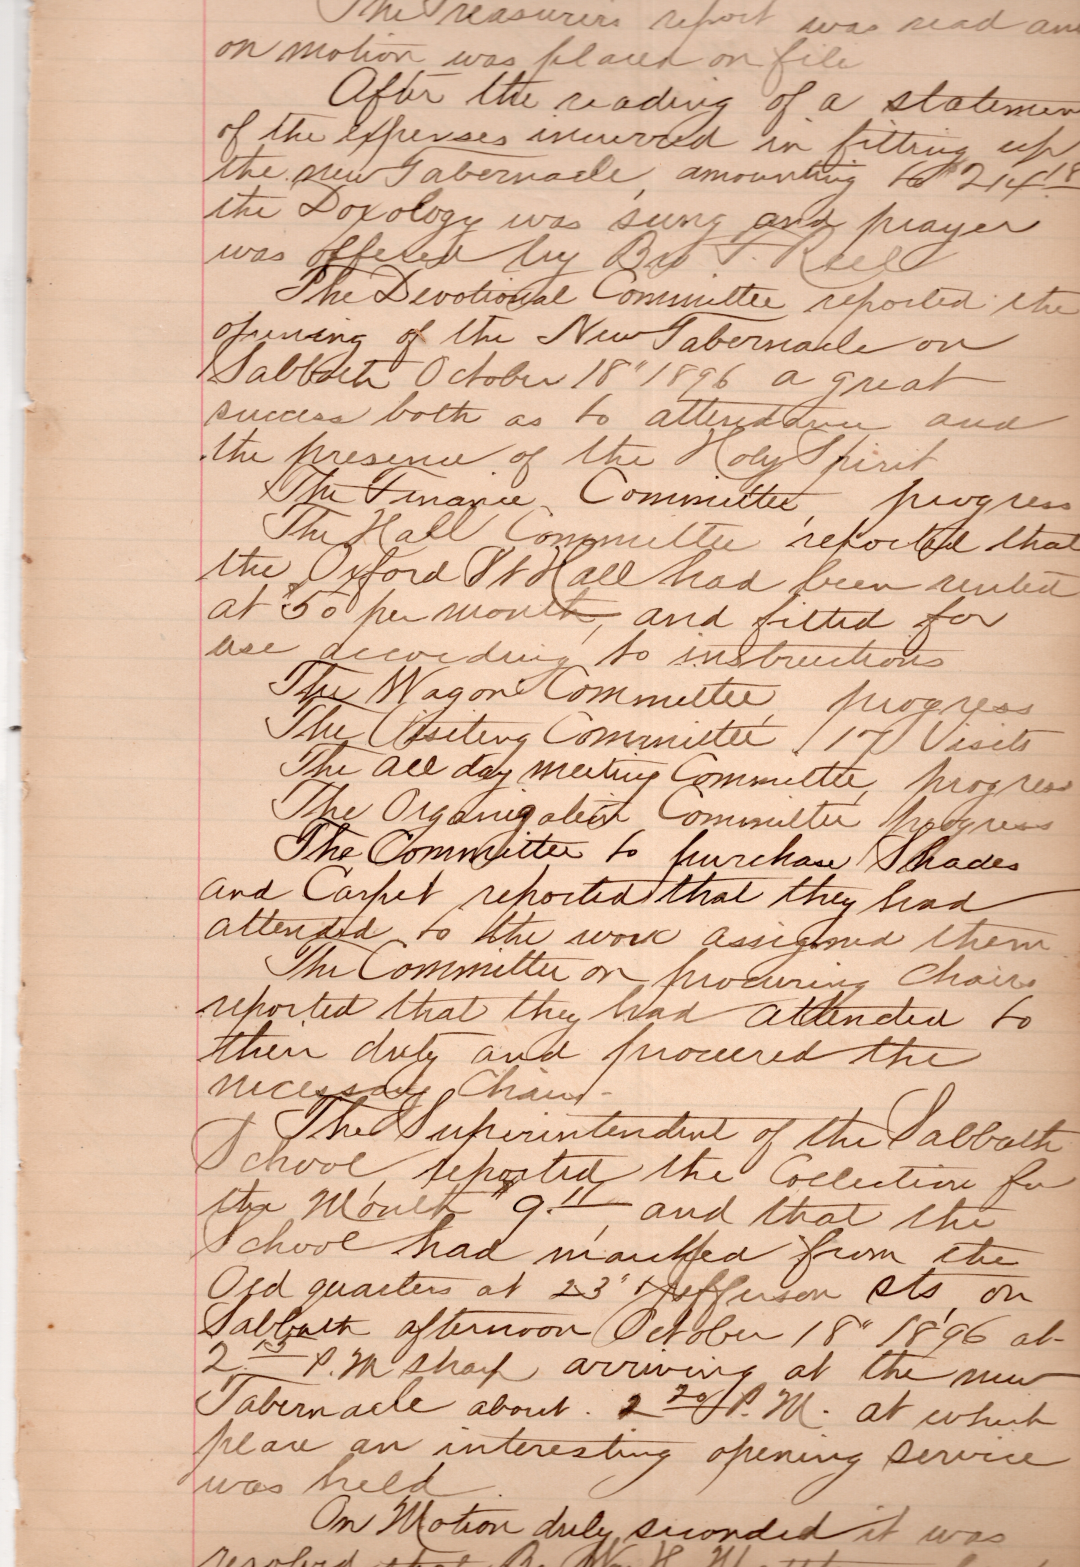 The Treasurers report was read and
on motion was placed on file
After the reading of a statemen
of the expenses incurred in fitting up
the new Tabernacle, amounting to $214.18
the Doxology was sung and prayer
was offered by Bro T.
The Devotional Committee reported the
opening of the New Tabernacle on
Sabbath October 18" 1896 a great
success both as to attendance and
the presence of the Holy Spirit
The Finance Committee, progress
The Hall Committee reported that
the Oxford St Hall had been rented
at $50 per month, and fitted for
use according to instructions
The Wagon Committee, progress
The Visiting Committee, 17 Visits
The all day meeting Committee, progress
The Organization Committee progress
The Committee to purchase Shades
and Carpet reported that they had
attended to the work assigned them
The Committee on procuring Chairs
reported that they had attended to
their duty and procured the
necessary Chairs-
The Superintendent of the Sabbath
School, reported the Collection for
the Month $9.11, and that the
School had marched from the
Old quarters at 23" & Jefferson Sts, on
Sabbath afternoon October 18" 1896 at
2.15 P.M sharp arriving at the new
Tabernacle about 2.20 P.M. at which
place an interesting opening service
was held.
On Motion duly seconded it was
resolved that Bro Wm H.